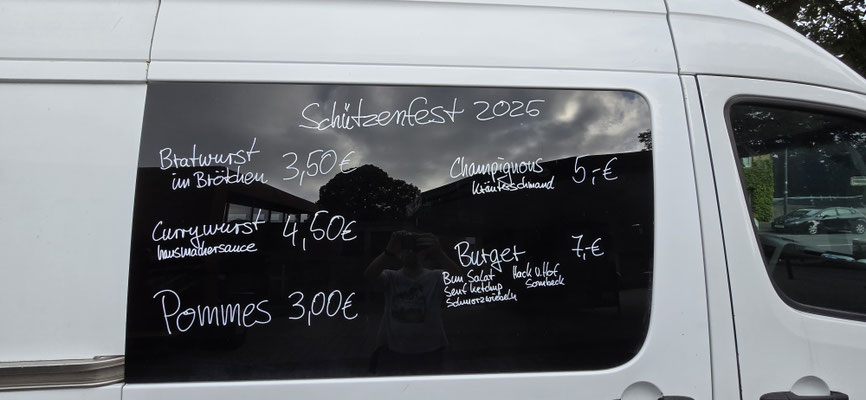 Schützenfest 2025
Bratwurst 3,50€
im Brötchen
Currywurst 4,50€
hausmachersauce
Pommes 3,00€
Champignons 5,-€
Kräuterschmand
Burger 7,-€
Bun Salat Hack v. Hof
Senf Ketchup Sombeck
Schmorzwiebeln